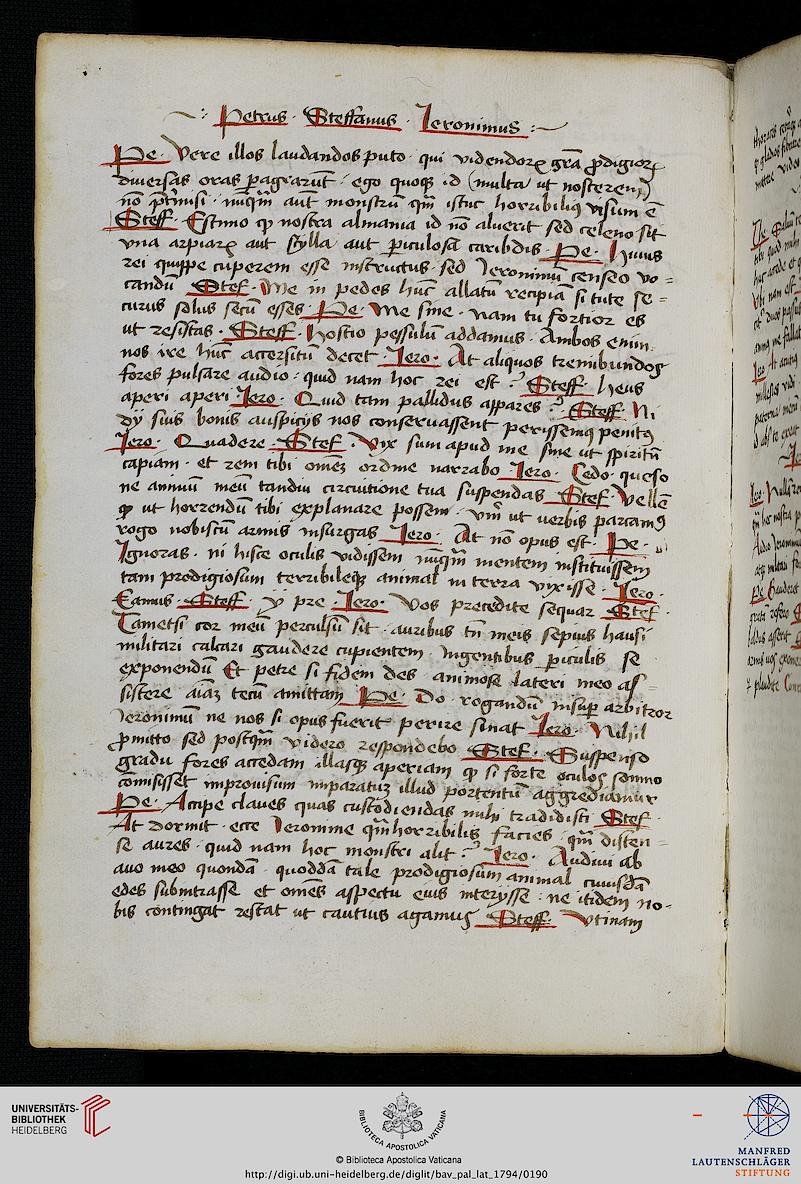 Petrus · Steffanus · Ieronimus :~
Pe · Vere illos laudandos puto · qui videndoꝝ grã ꝓdigioꝝ
diuersas oras ꝑagrarũt · ego quoqꝫ id (multa ut nosterem)
nõ · nuqm̃ aut monstrũ qm̃ istuc horribiliꝰ visum ẽ
Steff · Estimo ꝙ nostra almania id nõ aluerit sed celeno sit
vna arpiaꝝ aut scylla aut ꝑiculosa caribdis · Pe · huius
rei quippe cuperem esse instructus · sed Ieronimũ censeo vo-
candũ Stef · Me in pedes huc allatũ recipiã si tute se-
curus solus secũ esses · Pe · Me sine · nam tu fortior es
ut resistas · Steff · hostio pessulũ addamus · Ambos enim
nos ire huc accersitũ decet · Iero · At aliquos tremibundos
fores pulsare audio · quid nam hoc rei est ? Steff · heus
aperi aperi Iero · Quid tam pallidus appares ? Steff · Ni
dy suis bonis auspicijs nos conseruassent perissemꝰ penitꝰ
Iero · Quadere · Stef · Vix sum apud me sine ut spiritũ
capiam · et rem tibi omẽ ordine narrabo · Iero · Cedo · queso
ne animũ meũ tandiu circuitione tua suspendas Stef · Vellẽ
ꝙ ut horrendũ tibi explanare possem · vm̃ ut uerbis parcamꝰ
rogo nobiscũ armis insurgas Iero · At nõ opus est · Pe ·
Ignoras · ni hisce oculis vidissem nuqm̃ mentem instituissem
tam prodigiosum terribileqꝫ animal in terra vixisse · Iero ·
Eamus · Steff · y pre · Iero · Vos precedite sequar Stef
Tametsi cor meũ perculsũ sit · auribus tñ meis sepius hausi
militari calcari gaudere cupientem · Ingentibus ꝑiculis se
exponendũ Et petre si fidem des · animose lateri meo as-
sistere aiãz tecũ amittam Pe · Do · rogandũ insuꝑ arbitror
Ieronimũ ne nos si opus fuerit perire sinat Iero · Nihil
ꝓmitto sed postqm̃ videro respondebo Stef · Suspenso
gradu fores accedam illasqꝫ aperiam ꝙ si forte oculos somno
cõmisisset improuisum imparatuꝫ illud portentũ aggrediamur
Pe · Accipe claues quas custodiendas mihi tradidisti Stef ·
At dormit · ecce Ieronime qm̃ horribilis facies · qm̃ disten-
se aures · quid nam hoc monstri alit ? Iero · Audiui ab
auo meo quondã · quoddã tale prodigiosum animal cuiusdã
edes subintrasse et omẽs aspectu eius interysse · ne itidem no-
bis contingat restat ut cautius agamus Steff · Vtinam
UNIVERSITÄTS-
BIBLIOTHEK
HEIDELBERG
BIBLIOTECA APOSTOLICA VATICANA
© Biblioteca Apostolica Vaticana
http://digi.ub.uni-heidelberg.de/diglit/bav_pal_lat_1794/0190
MANFRED
LAUTENSCHLÄGER
STIFTUNG